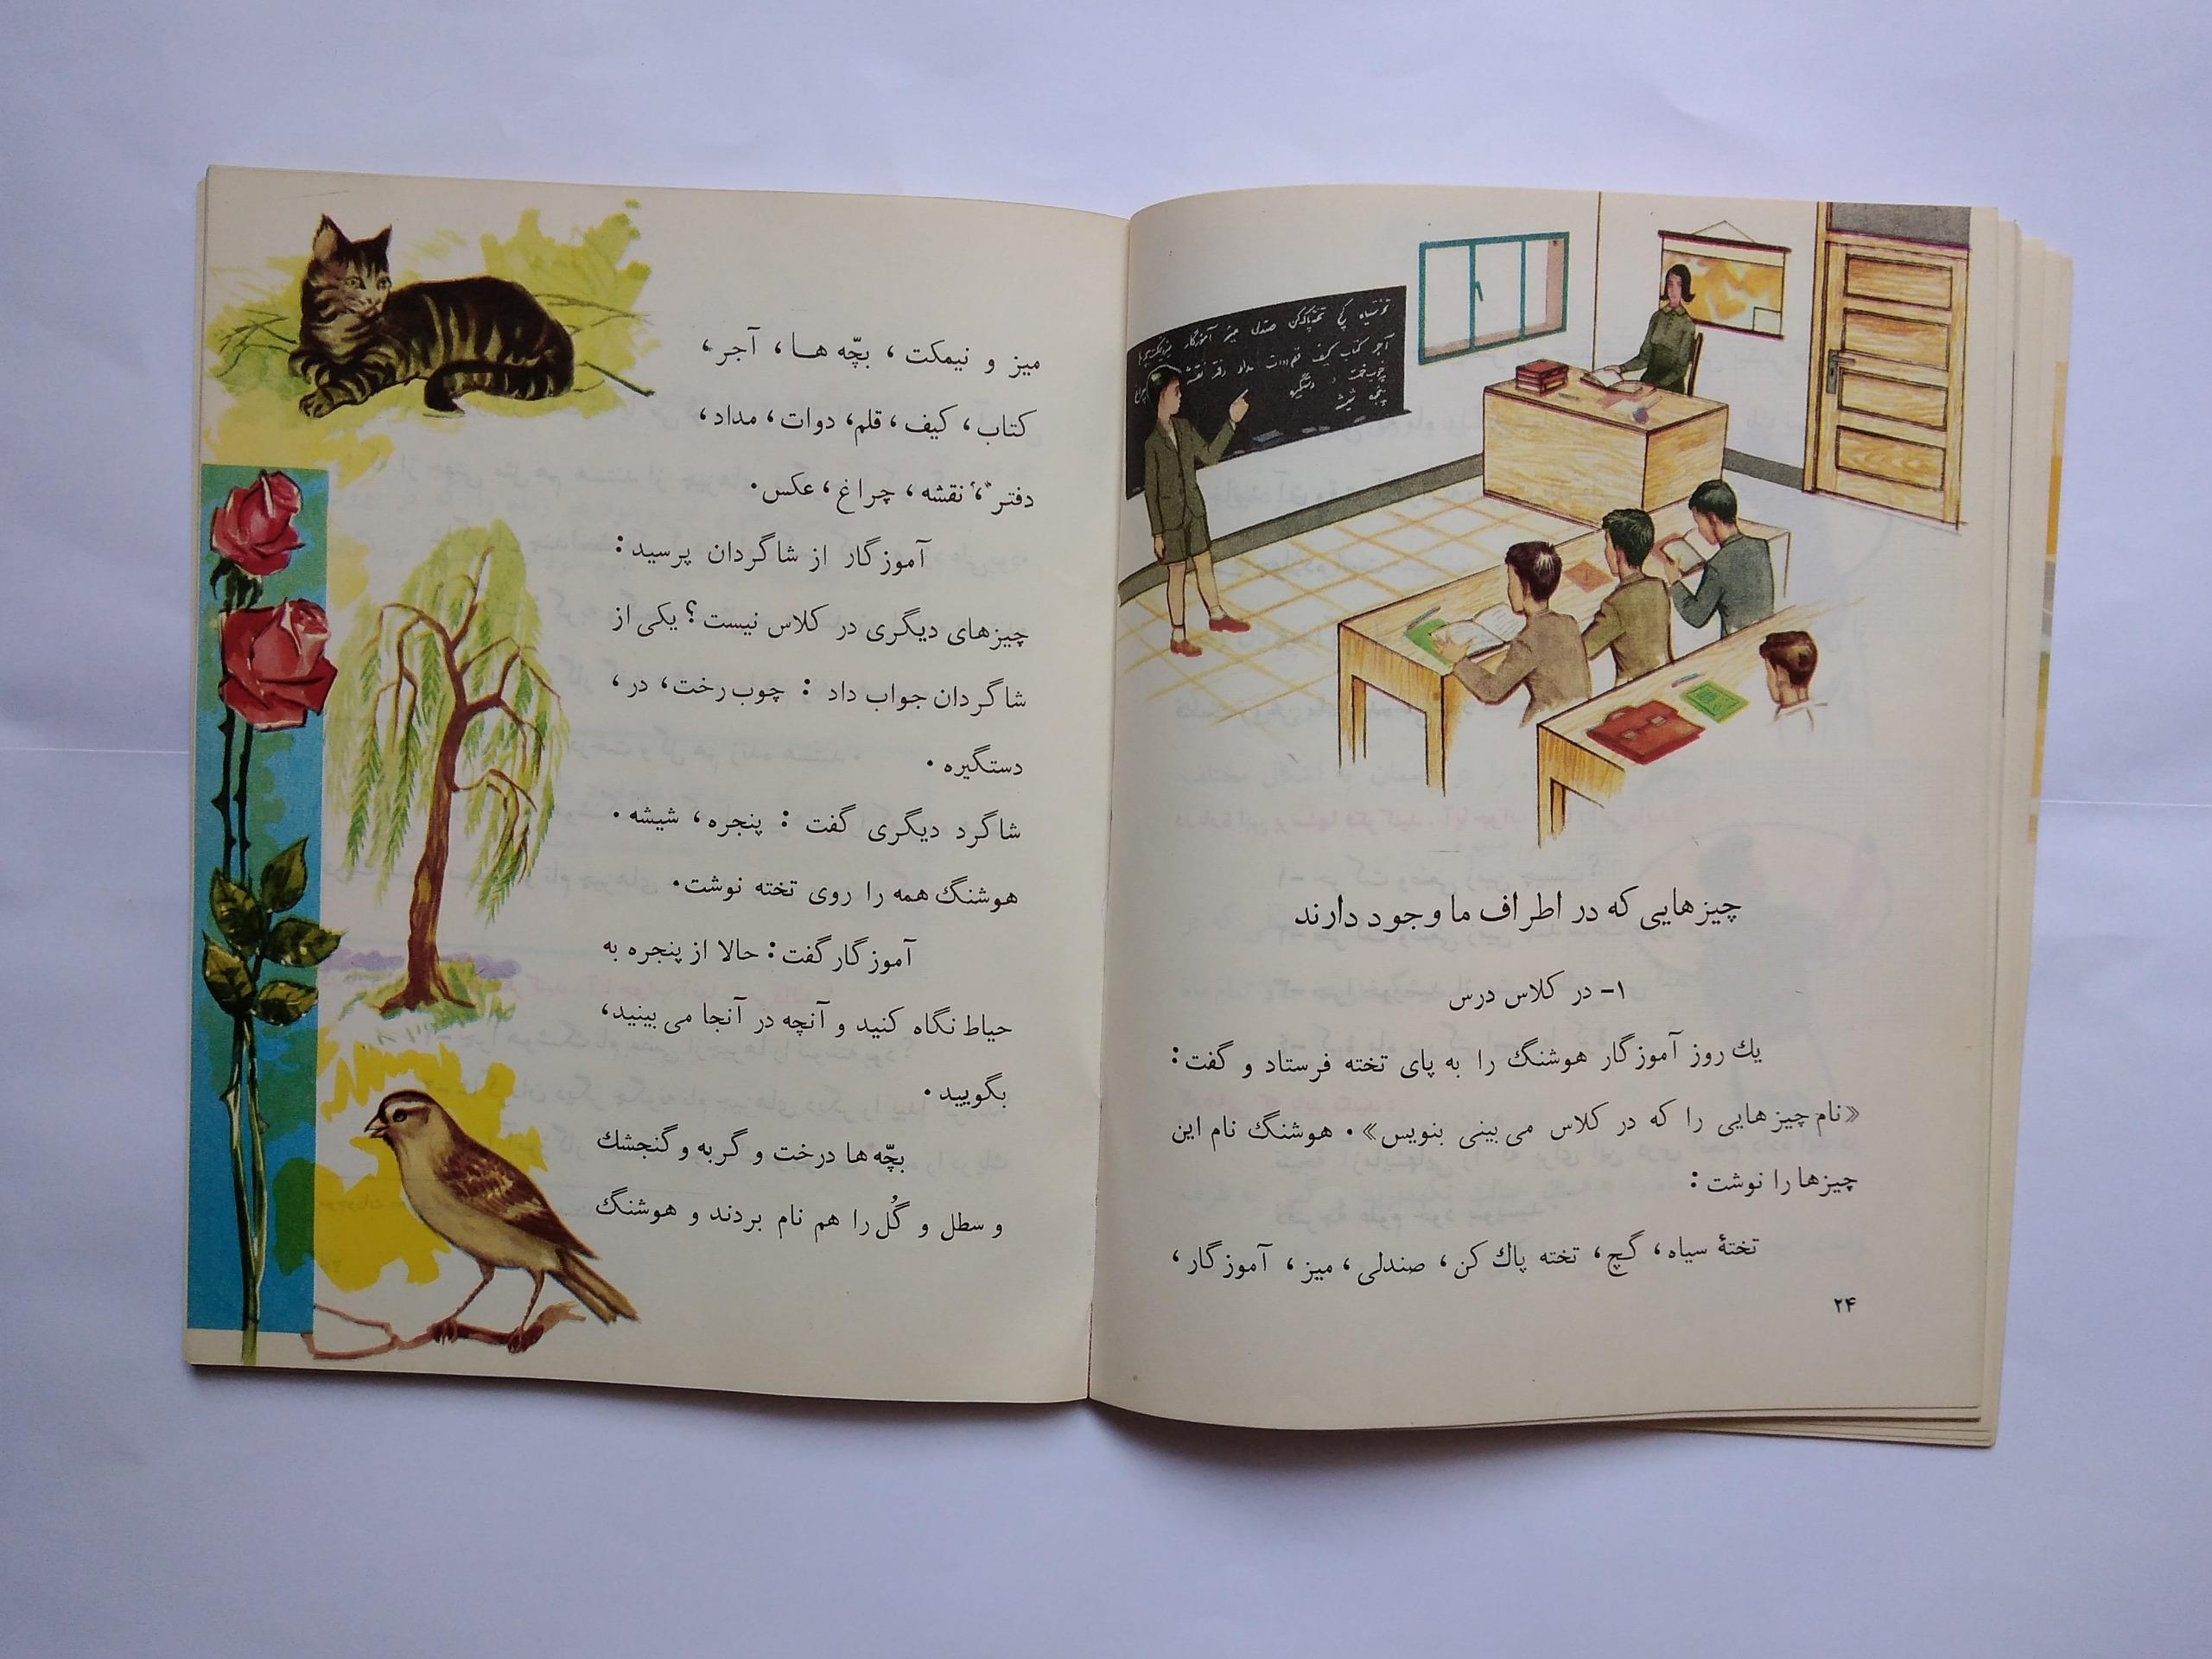 تخته سیاه گچ تخته پاک‌کن صندلی میز آموزگار
آجر کتاب کیف قلم دوات مداد دفتر نقشه
چوب رخت در دستگیره
پنجره شیشه
چیزهایی که در اطراف ما وجود دارند
۱- در کلاس درس
یك روز آموزگار هوشنگ را به پای تخته فرستاد و گفت:
«نام چیزهایی را که در کلاس می بینی بنویس». هوشنگ نام این
چیزها را نوشت:
تختهٔ سیاه، گچ، تخته پاك کن، صندلی، میز، آموزگار،
۲۴
میز و نیمکت، بچّه هـا، آجر،
کتاب، کیف، قلم، دوات، مداد،
دفتر، نقشه، چراغ، عکس.
آموزگار از شاگردان پرسید:
چیزهای دیگری در کلاس نیست؟ یکی از
شاگردان جواب داد: چوب رخت، در،
دستگیره.
شاگرد دیگری گفت: پنجره، شیشه.
هوشنگ همه را روی تخته نوشت.
آموزگار گفت: حالا از پنجره به
حیاط نگاه کنید و آنچه در آنجا می بینید،
بگویید.
بچّه ها درخت و گربه و گنجشك
و سطل و گُل را هم نام بردند و هوشنگ